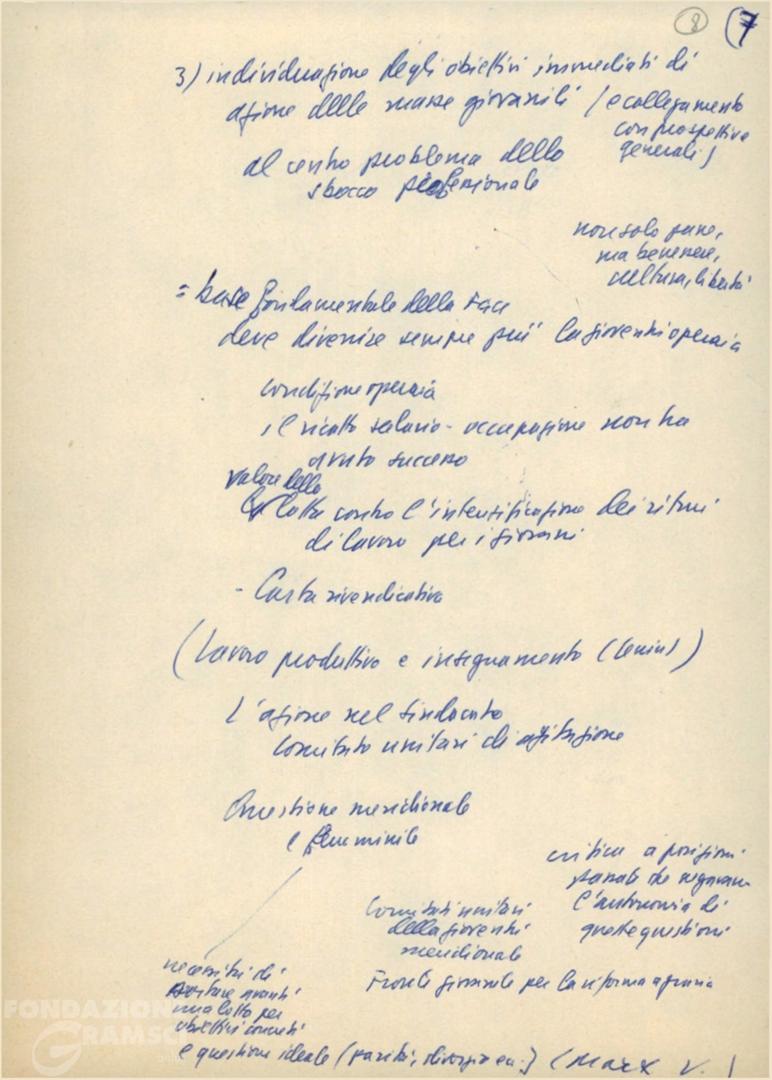 8 (7
3) individuazione degli obiettivi immediati di
azione delle masse giovanili (e collegamento
con prospettive
generali)
al centro problema dello
sbocco professionale
non solo pane,
ma benessere,
cultura, libertà
= base fondamentale della FGCI
deve divenire sempre più la gioventù operaia
condizione operaia
il ricatto salario - occupazione non ha
avuto successo
valore della
lotta contro l'intensificazione dei ritmi
di lavoro per i giovani
- Carta rivendicativa
(Lavoro produttivo e insegnamento (Lenin))
L'azione nel sindacato
Comitato unitari di agitazione
Questione meridionale
e femminile
critica a posizioni
passate che negavano
l'autonomia di
queste questioni
Comitati unitari
della gioventù
meridionale
Fronte giovanile per la riforma agraria
necessità di
portare avanti
una lotta per
obiettivi concreti
e questione ideale (parità, divorzio ecc.) (Marx V.)
FONDAZIONE
GRAMSCI